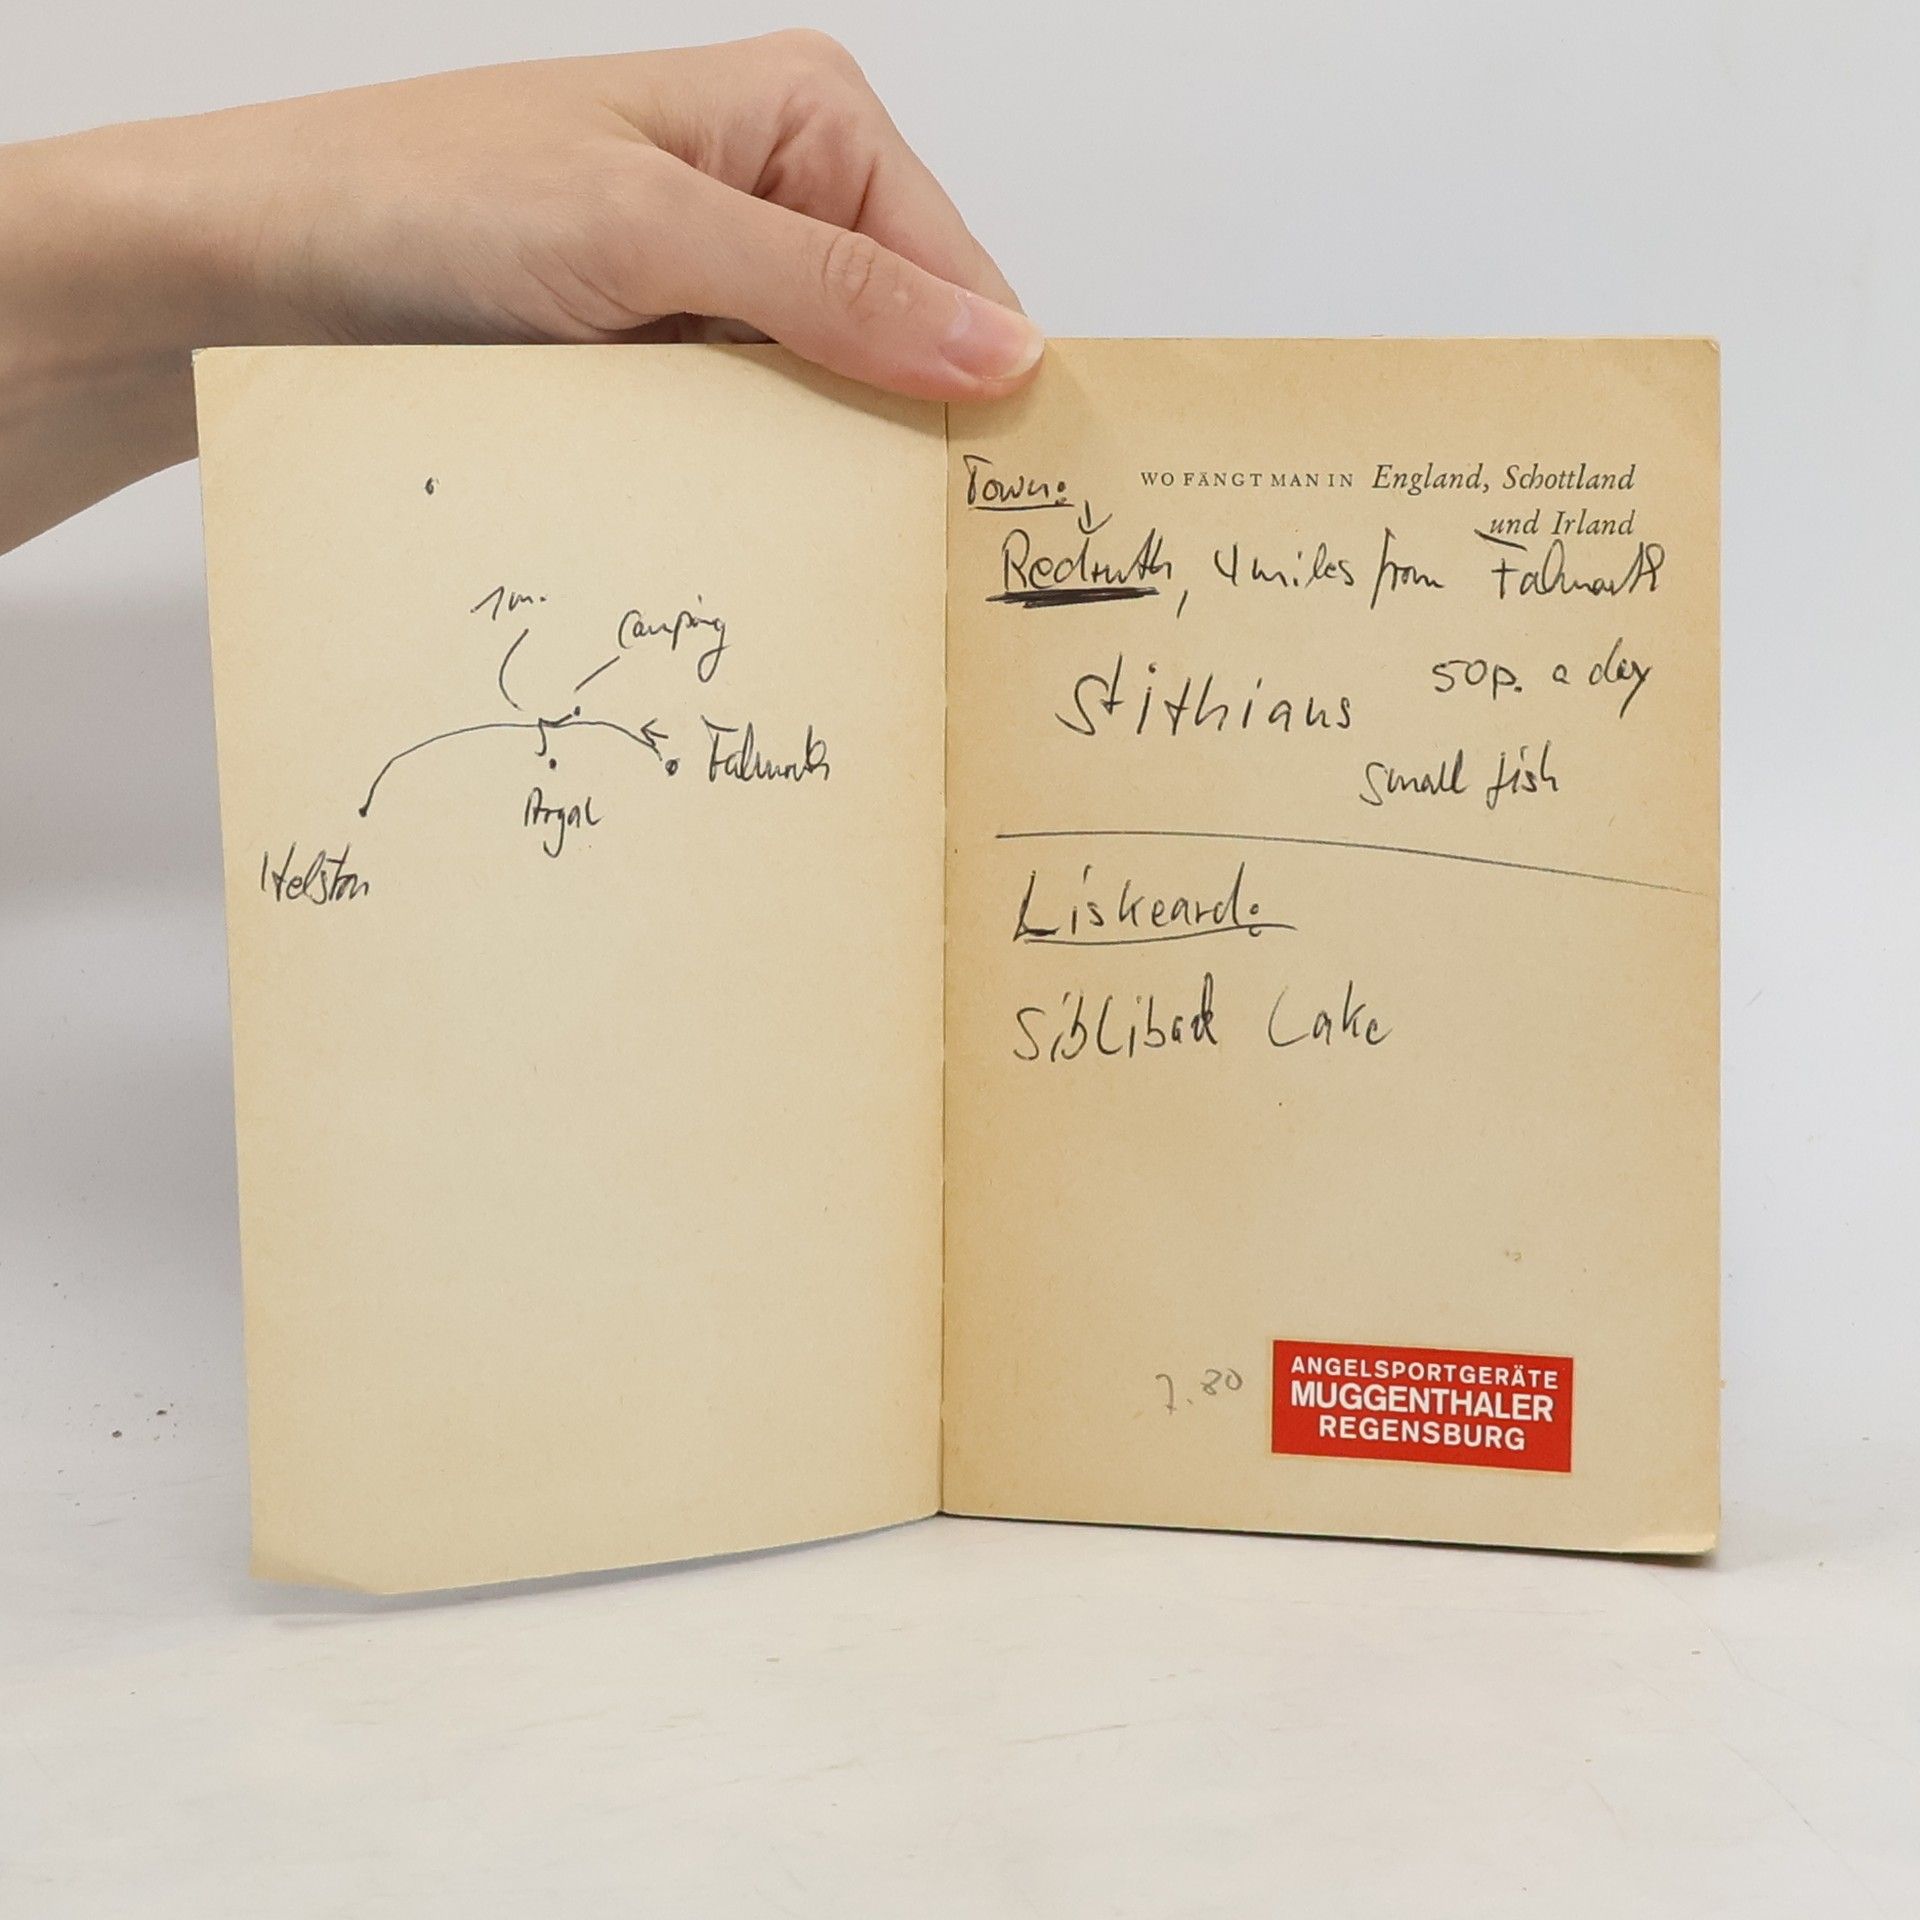 1 m.
Camping
Falmouth
Argal
Helston
Town:
WO FÄNGT MAN IN England, Schottland
und Irland
Redruth, 4 miles from Falmouth
Stithians
50p. a day
small fish
Liskeard:
Sibliback Lake
7.80
ANGELSPORTGERÄTE
MUGGENTHALER
REGENSBURG